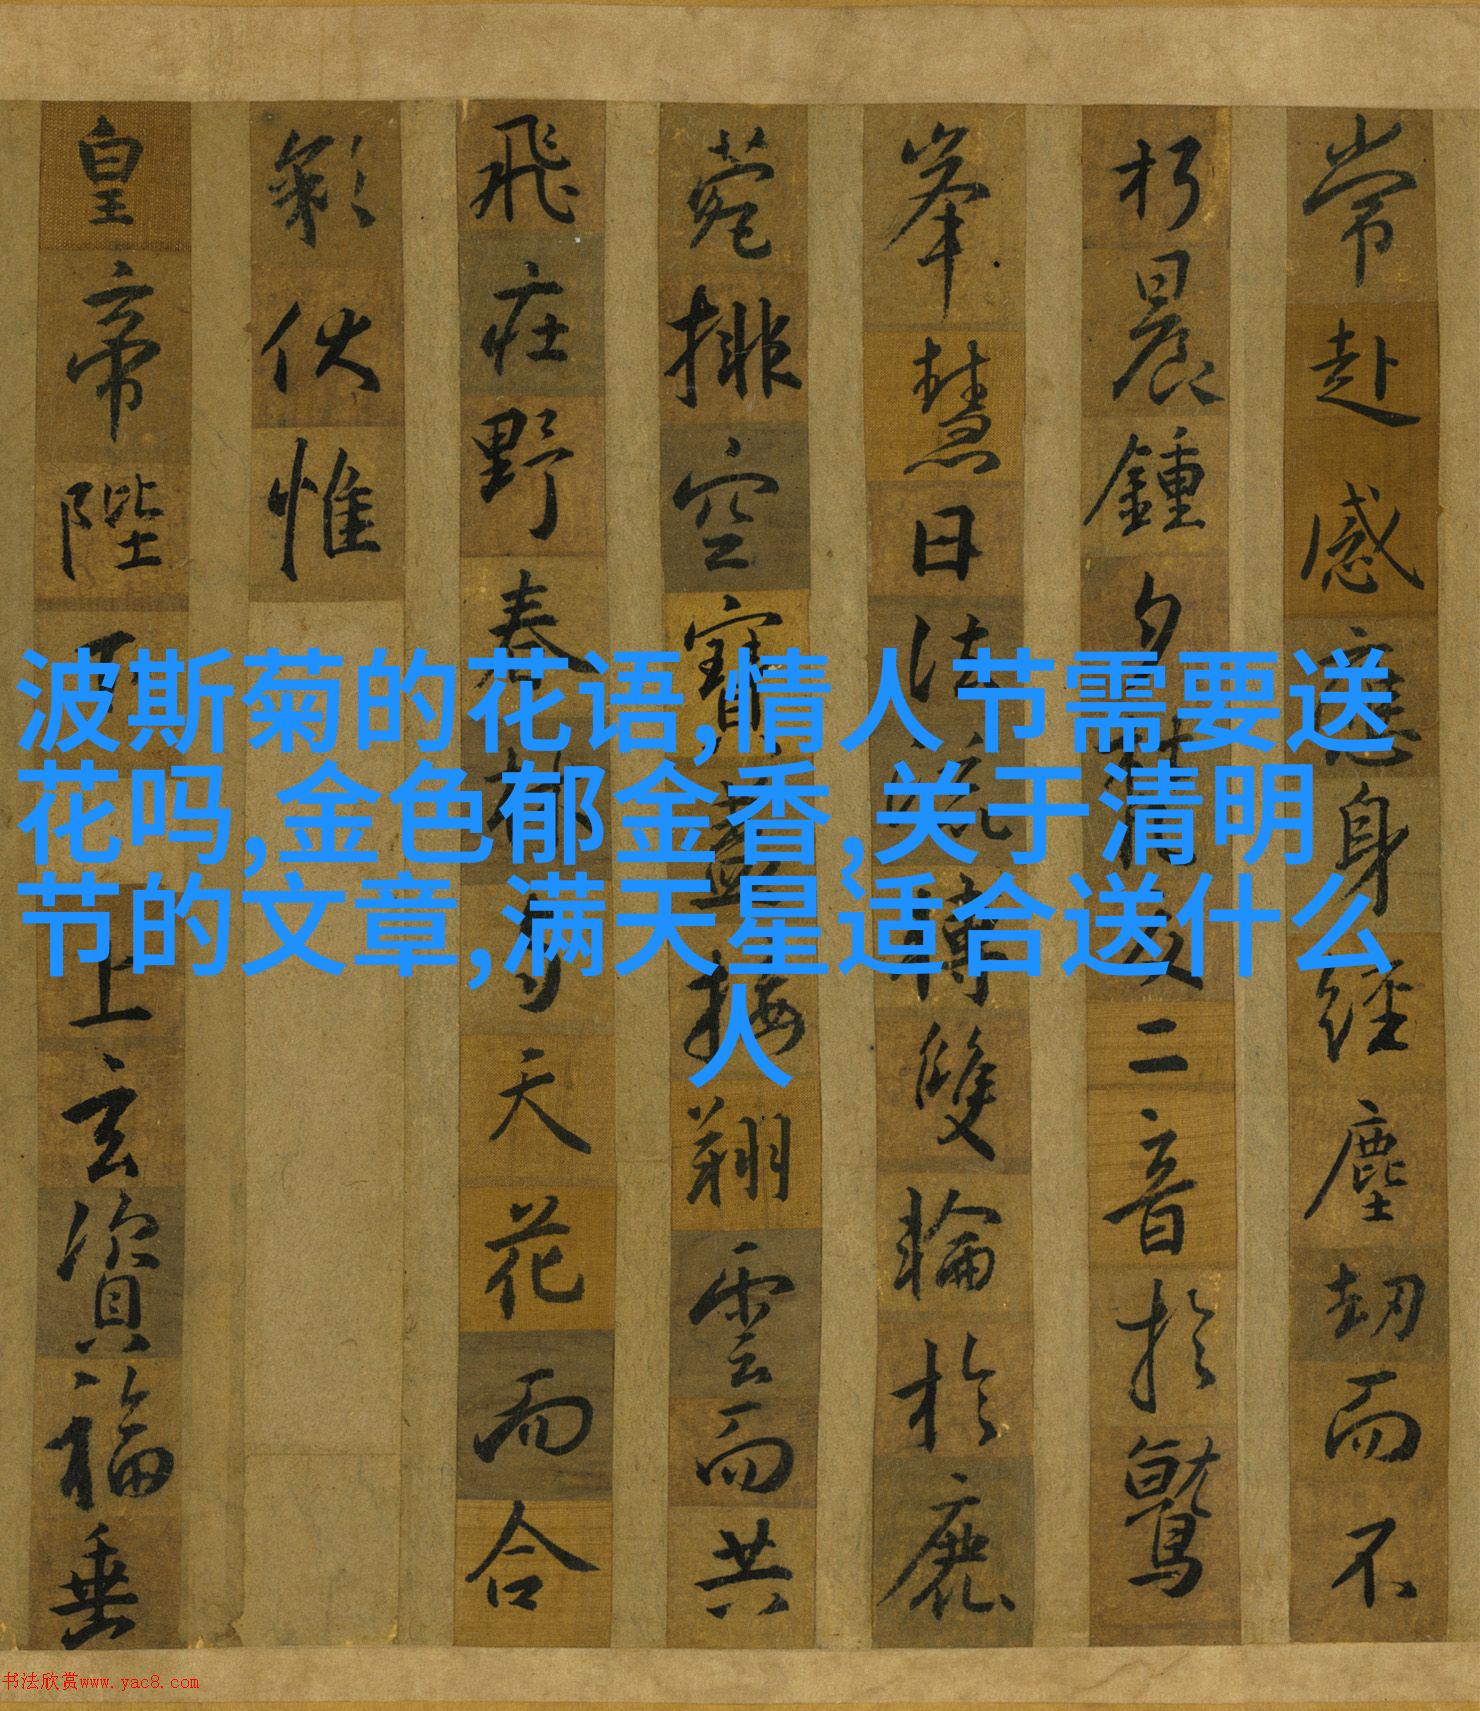 波斯菊的花语,情人节需要送
花吗,金色郁金香,关于清明
节的文章,满天星适合送什么
人
常赴感應身經塵劫而不
朽晨鍾夕梵交二音於鷲
峯慧日法流轉雙輪於鹿
菀排空寶蓋接翔雲而共
飛莊野春林与天花而合
彩伏惟
皇帝陛下上玄資福垂
书法欣赏www.yac8.com